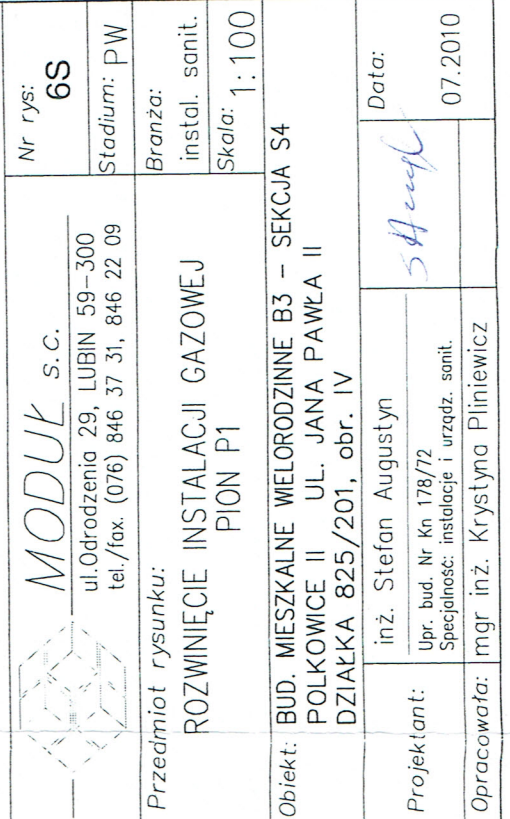 MODUŁ s.c.
ul.Odrodzenia 29, LUBIN 59-300
tel./fax. (076) 846 37 31, 846 22 09
Nr rys:
6S
Stadium: PW
Przedmiot rysunku:
ROZWINIĘCIE INSTALACJI GAZOWEJ
PION P1
Branża:
instal. sanit.
Skala: 1:100
Obiekt: BUD. MIESZKALNE WIELORODZINNE B3 – SEKCJA S4
POLKOWICE II UL. JANA PAWŁA II
DZIAŁKA 825/201, obr. IV
Projektant:
inż. Stefan Augustyn
Upr. bud. Nr Kn 178/72
Specjalność: instalacje i urządz. sanit.
Data:
Opracowała: mgr inż. Krystyna Pliniewicz
07.2010